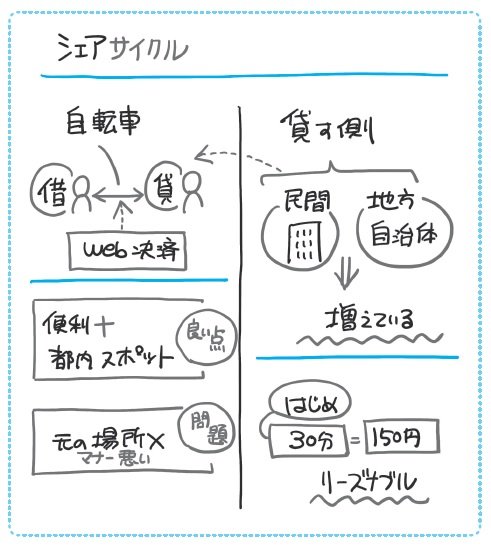 シェアサイクル
自転車
借
貸
Web決済
便利＋
都内スポット
良い点
元の場所×
マナー悪い
問題
貸す側
民間
地方
自治体
増えている
はじめ
30分 = 150円
リーズナブル